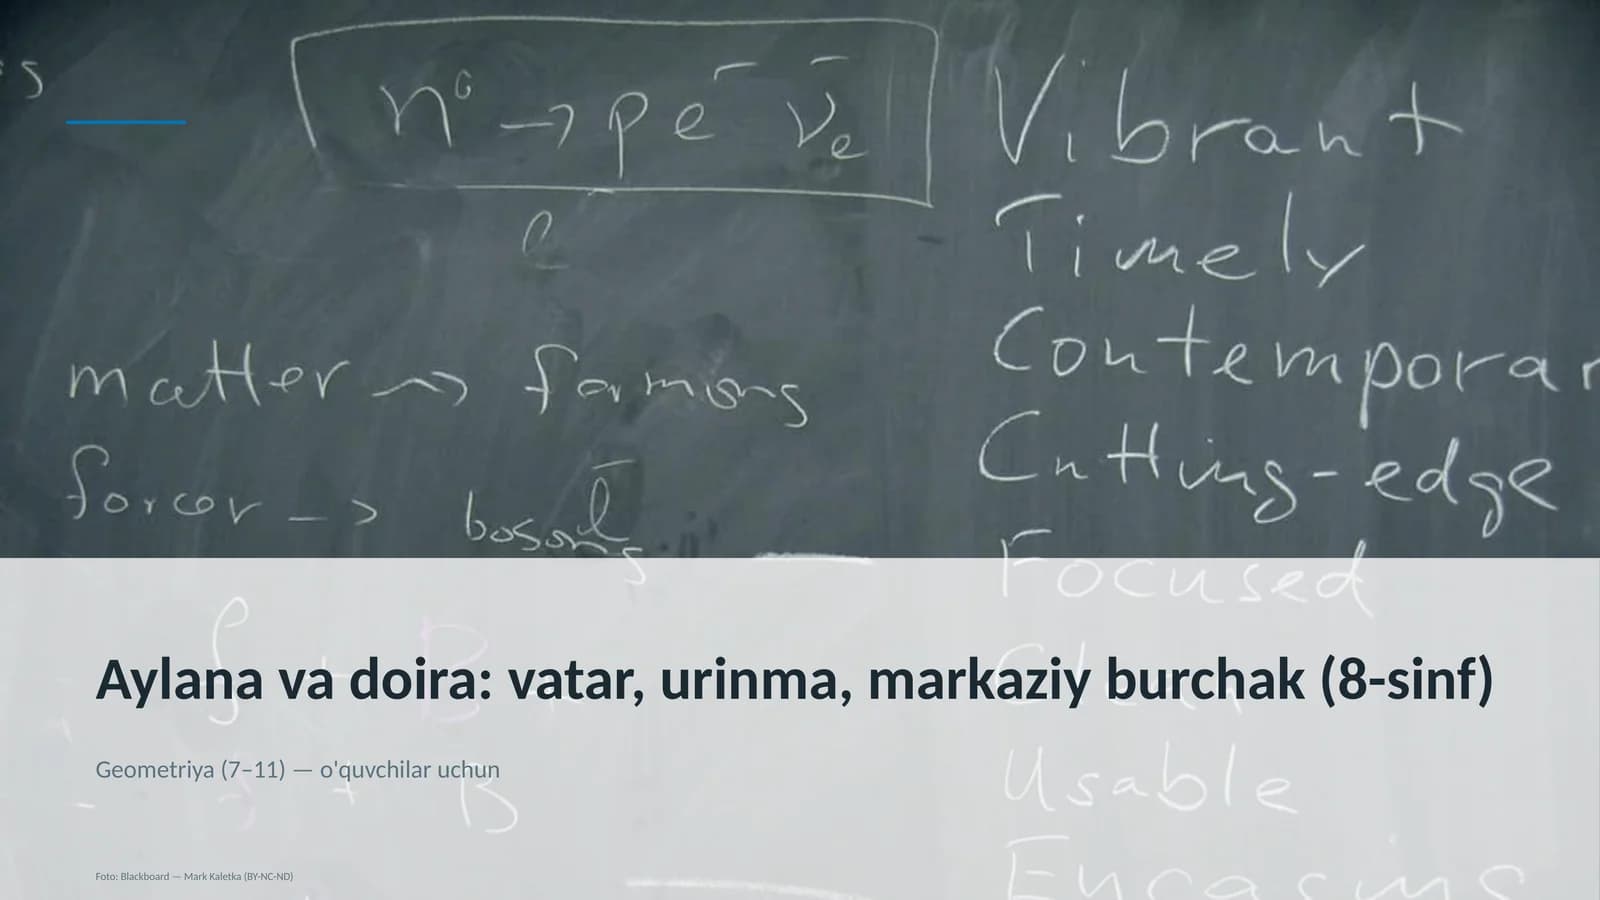 s
n⁰ → p e⁻ ν̄e
Vibrant
l
Timely
matter → forming
Contemporar
forcer -> bosons
l̄
Cutting-edge
Focused
B
Aylana va doira: vatar, urinma, markaziy burchak (8-sinf)
Geometriya (7–11) — o'quvchilar uchun
Usable
B
Foto: Blackboard — Mark Kaletka (BY-NC-ND)